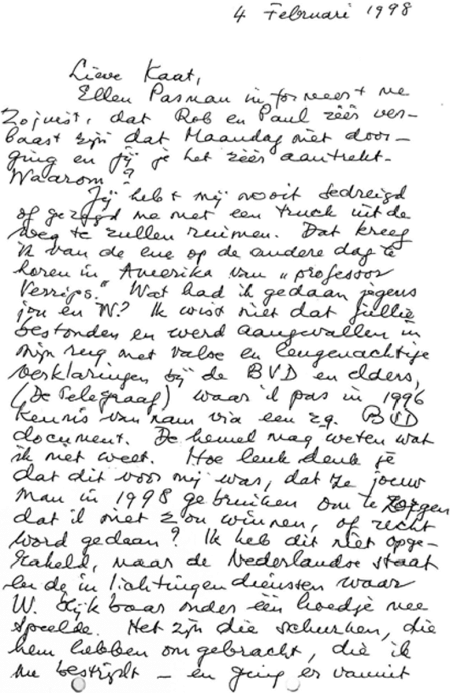 4 Februari 1998
Lieve Kaat,
Ellen Pasman informeert me
zojuist, dat Rob en Paul zéér ver-
baast zijn dat Maandag niet door-
ging en jij je het zéér aantrekt.
Waarom?
Jij hebt mij nooit bedreigd
of gezegd me met een truck uit de
weg te zullen ruimen. Dat kreeg
ik van de ene op de andere dag te
horen in Amerika van "professor
Verrips." Wat had ik gedaan jegens
jou en W? Ik wist niet dat jullie
bestonden en werd aangevallen in
mijn rug met valse en leugenachtige
verklaringen bij de BVD en elders,
(De Telegraaf) waar ik pas in 1996
kennis van nam via een zg. BVD
document. De hemel mag weten wat
ik niet weet. Hoe leuk denk je
dat dit voor mij was, dat ze jouw
man in 1998 gebruiken om te zorgen
dat ik niet zou winnen, of recht
word gedaan? Ik heb dit niet opge-
rakeld, maar de Nederlandse staat
en de inlichtingendiensten waar
W. blijkbaar onder één hoedje mee
speelde. Het zijn die schurken, die
hem hebben omgebracht, die ik
nu bestrijdt – en ging er vanuit